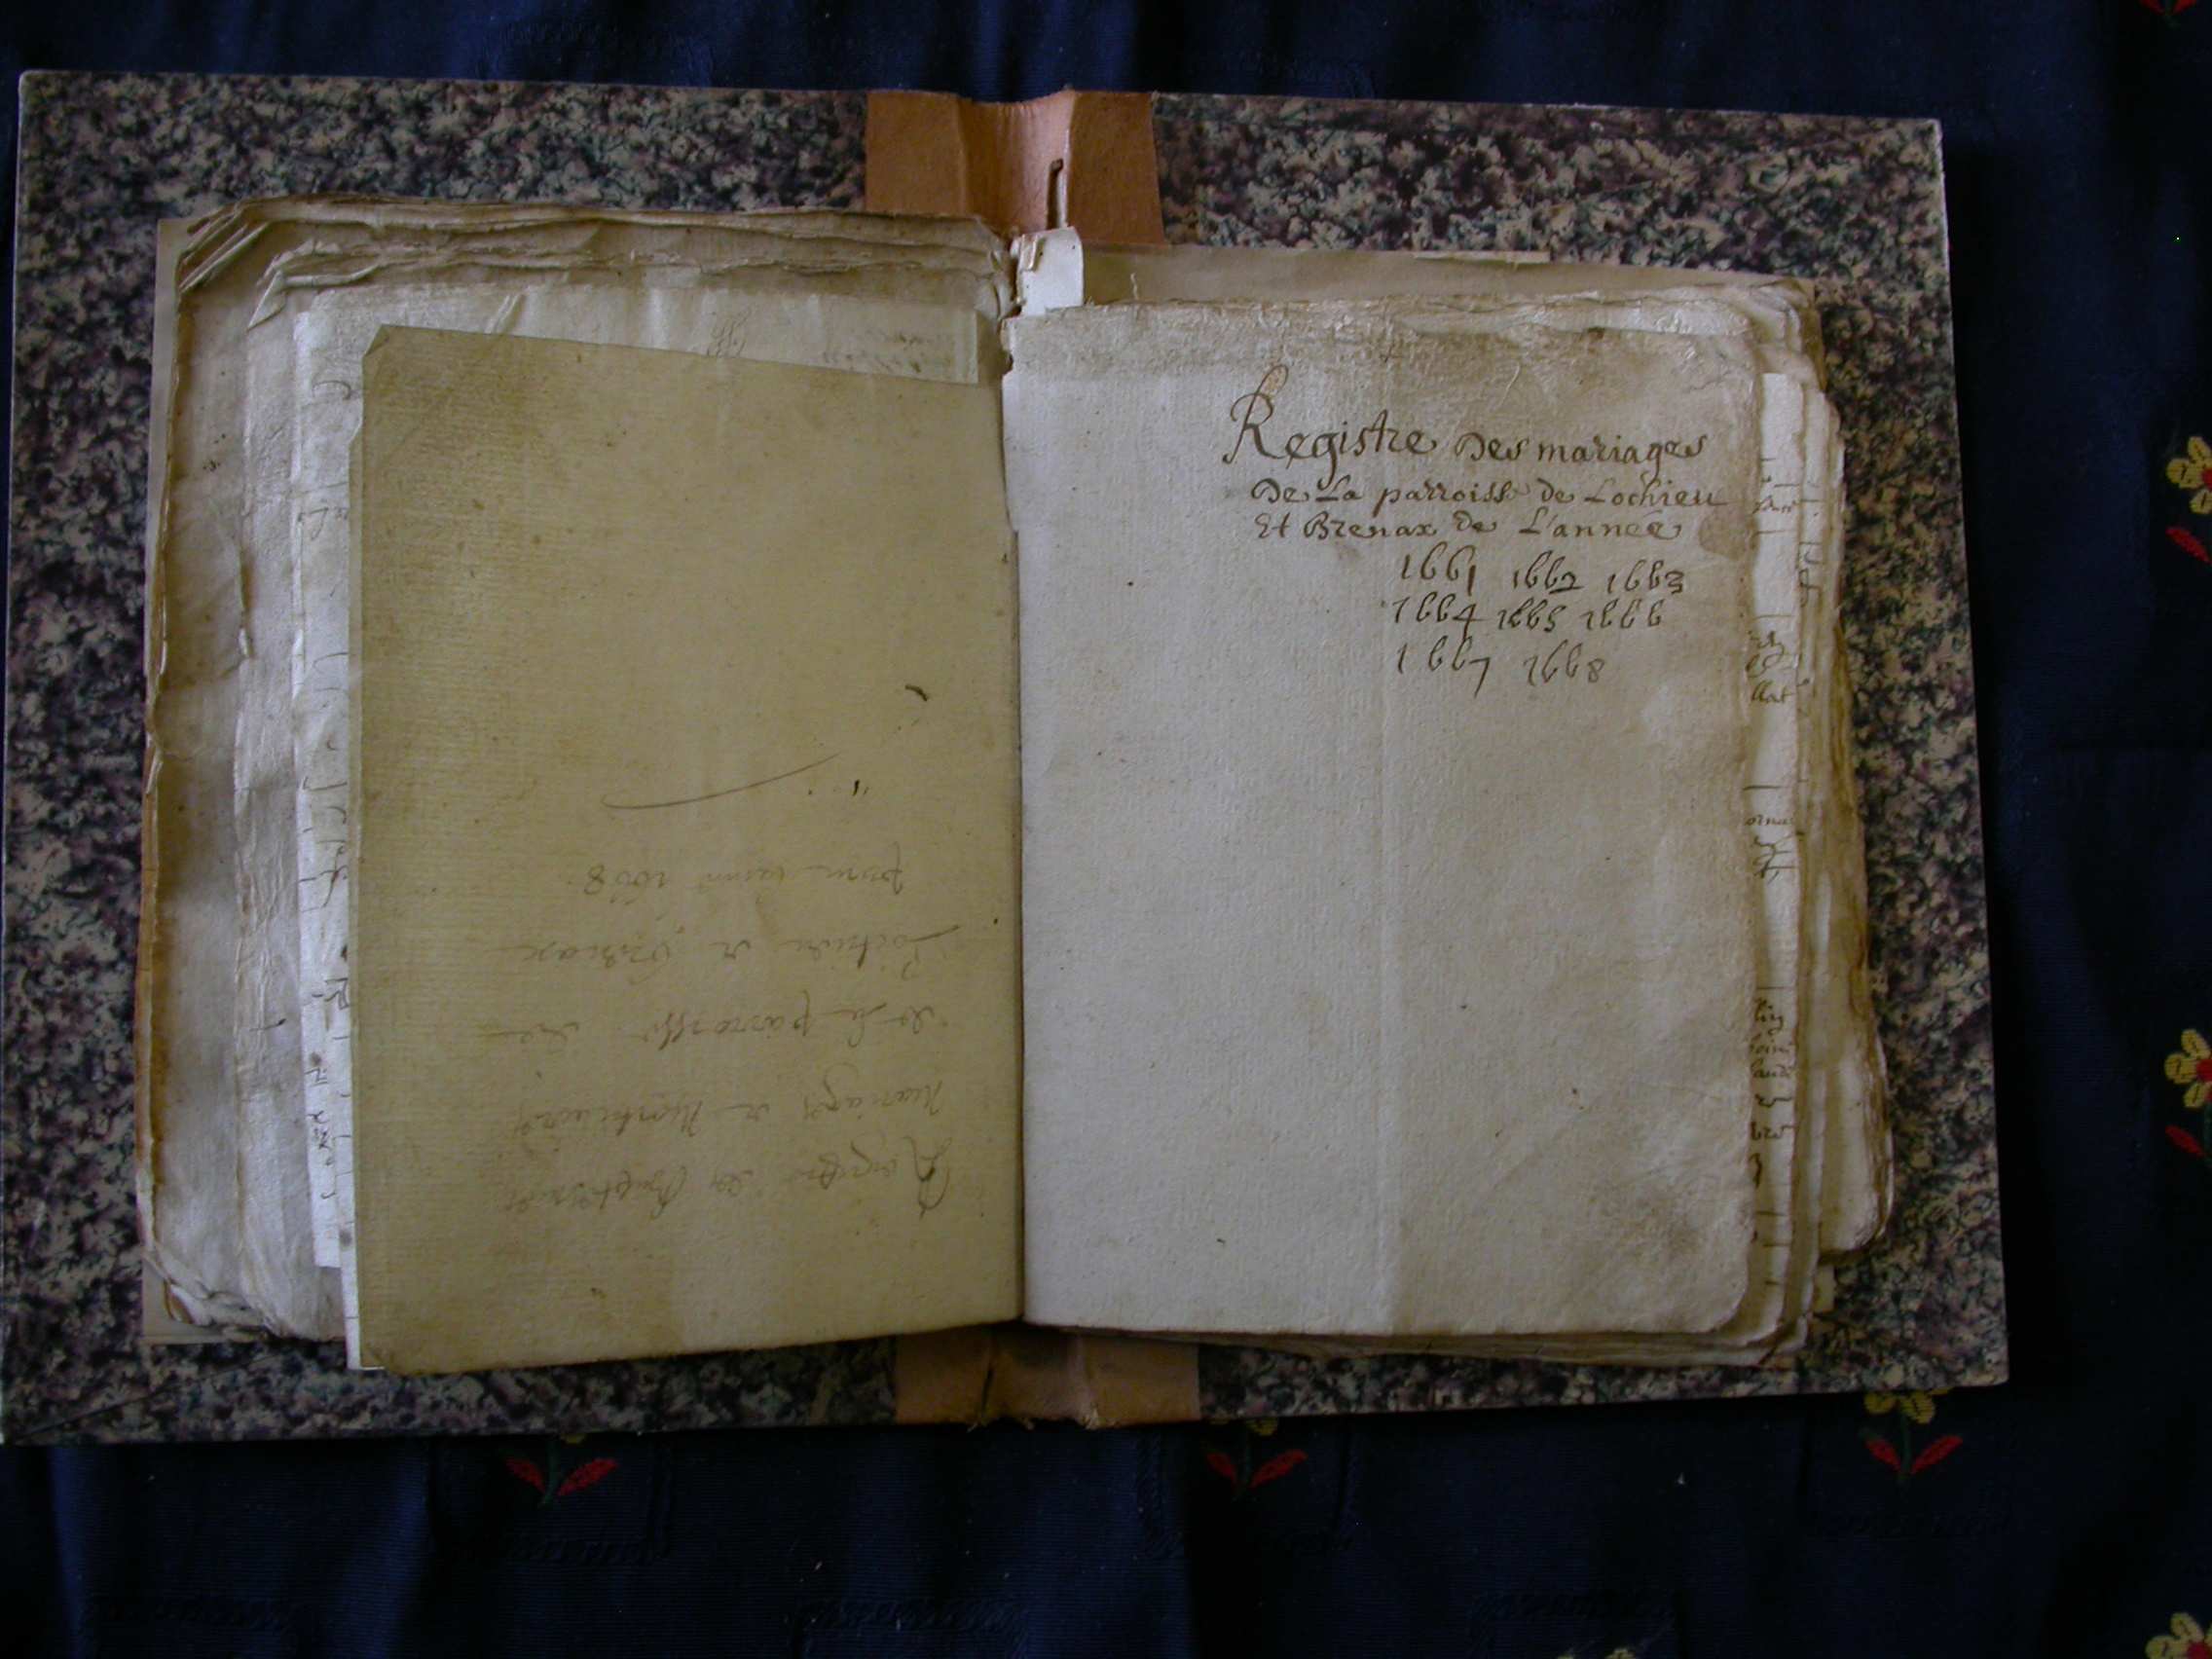 Registre des Baptesmes
Mariages et Mortuaires
de la parroisse de
Lochieu et Brenax
pour 1668
Registre Des mariages
De La parroisse de Lochieu
Et Brenax de L'année
1661 1662 1663
1664 1665 1666
1667 1668